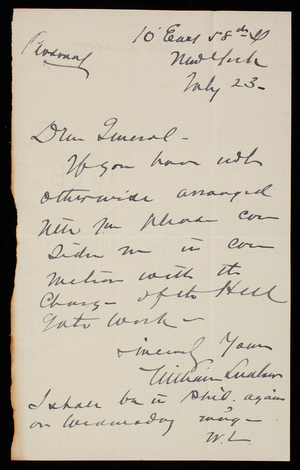 Personal
10 East 58th St
New York
July 23-
Dear General-
If you have not
otherwise arranged
will you please con
sider me in con
nection with the
charge of the Hell
Gate Work-
Sincerely Yours
William Ludlow
I shall be in Phil. again
on Wednesday mng-
W.L